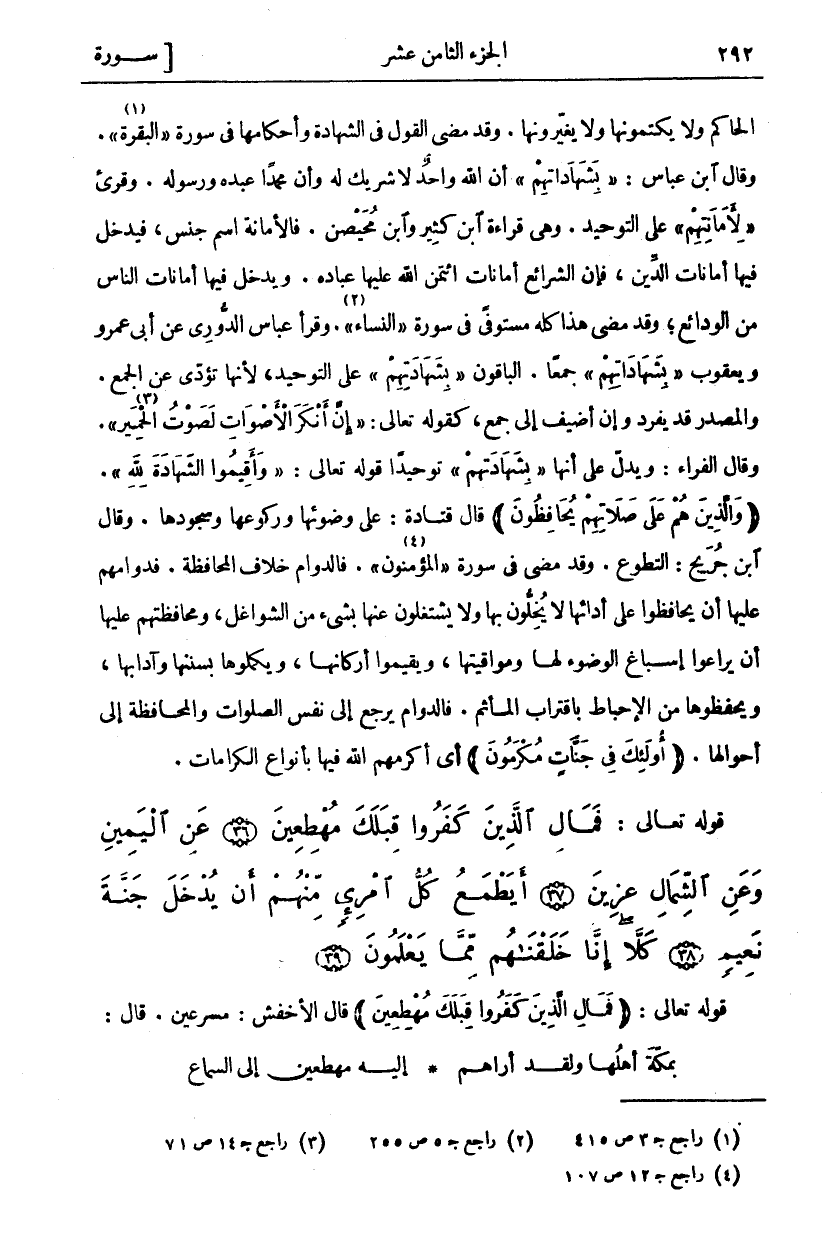 ٢٩٢ الجزء الثامن عشر [ ســورة
الحاكم ولا يكتمونها ولا يغيّرونها . وقد مضى القول فى الشهادة وأحكامها فى سورة «البقرة»(١) .
وقال ٱبن عباس : « بِشَهَادَاتِهِمْ » أن الله واحدٌ لا شريك له وأن محمدًا عبده ورسوله . وقرئ
«لِأَمَانَتِهِمْ» على التوحيد . وهى قراءة ٱبن كثير وٱبن مُحَيْصن . فالأمانة اسم جنس ، فيدخل
فيها أمانات الدِّين ، فإن الشرائع أمانات ائتمن الله عليها عباده . ويدخل فيها أمانات الناس
من الودائع ؛ وقد مضى هذا كله مستوفًى فى سورة «النساء»(٢) . وقرأ عباس الدُّورى عن أبى عمرو
ويعقوب « بِشَهَادَاتِهِمْ » جمعًا . الباقون « بِشَهَادَتِهِمْ » على التوحيد ، لأنها تؤدّى عن الجمع .
والمصدر قد يفرد وإن أضيف إلى جمع ، كقوله تعالى : « إِنَّ أَنْكَرَ الْأَصْوَاتِ لَصَوْتُ الْحَمِيرِ »(٣) .
وقال الفراء : ويدلّ على أنها « بِشَهَادَتِهِمْ » توحيدًا قوله تعالى : « وَأَقِيمُوا الشَّهَادَةَ لِلهِ » .
( وَالَّذِينَ هُمْ عَلَى صَلَاتِهِمْ يُحَافِظُونَ ) قال قتـادة : على وضوئها وركوعها وسجودها . وقال
ٱبن جُرَيج : التطوع . وقد مضى فى سورة «المؤمنون»(٤) . فالدوام خلاف المحافظة . فدوامهم
عليها أن يحافظوا على أدائها لا يُخِلُّون بها ولا يشتغلون عنها بشىء من الشواغل ، ومحافظتهم عليها
أن يراعوا إسـباغ الوضوء لهـا ومواقيتها ، ويقيموا أركانهـا ، ويكملوها بسننها وآدابها ،
ويحفظوها من الإحباط باقتراب المـأثم . فالدوام يرجع إلى نفس الصلوات والمحـافظة إلى
أحوالها . ( أُولَئِكَ فِي جَنَّاتٍ مُكْرَمُونَ ) أى أكرمهم الله فيها بأنواع الكرامات .
قوله تعـالى : فَمَالِ ٱلَّذِينَ كَفَرُوا قِبَلَكَ مُهْطِعِينَ ٣٦ عَنِ ٱلْيَمِينِ
وَعَنِ ٱلشِّمَالِ عِزِينَ ٣٧ أَيَطْمَعُ كُلُّ ٱمْرِيٍٕ مِّنْهُمْ أَن يُدْخَلَ جَنَّةَ
نَعِيمٍ ٣٨ كَلَّآ إِنَّا خَلَقْنَٰهُم مِّمَّا يَعْلَمُونَ ٣٩
قوله تعالى : ( فَمَالِ الَّذِينَ كَفَرُوا قِبَلَكَ مُهْطِعِينَ ) قال الأخفش : مسرعين . قال :
بمكّة أهلُهـا ولقـد أراهـم * إليـه مهطعين إلى السماع
(١) راجع جـ ٣ ص ٤١٥ (٢) راجع جـ ٥ ص ٢٥٥ (٣) راجع جـ ١٤ ص ٧١
(٤) راجع جـ ١٢ ص ١٠٧